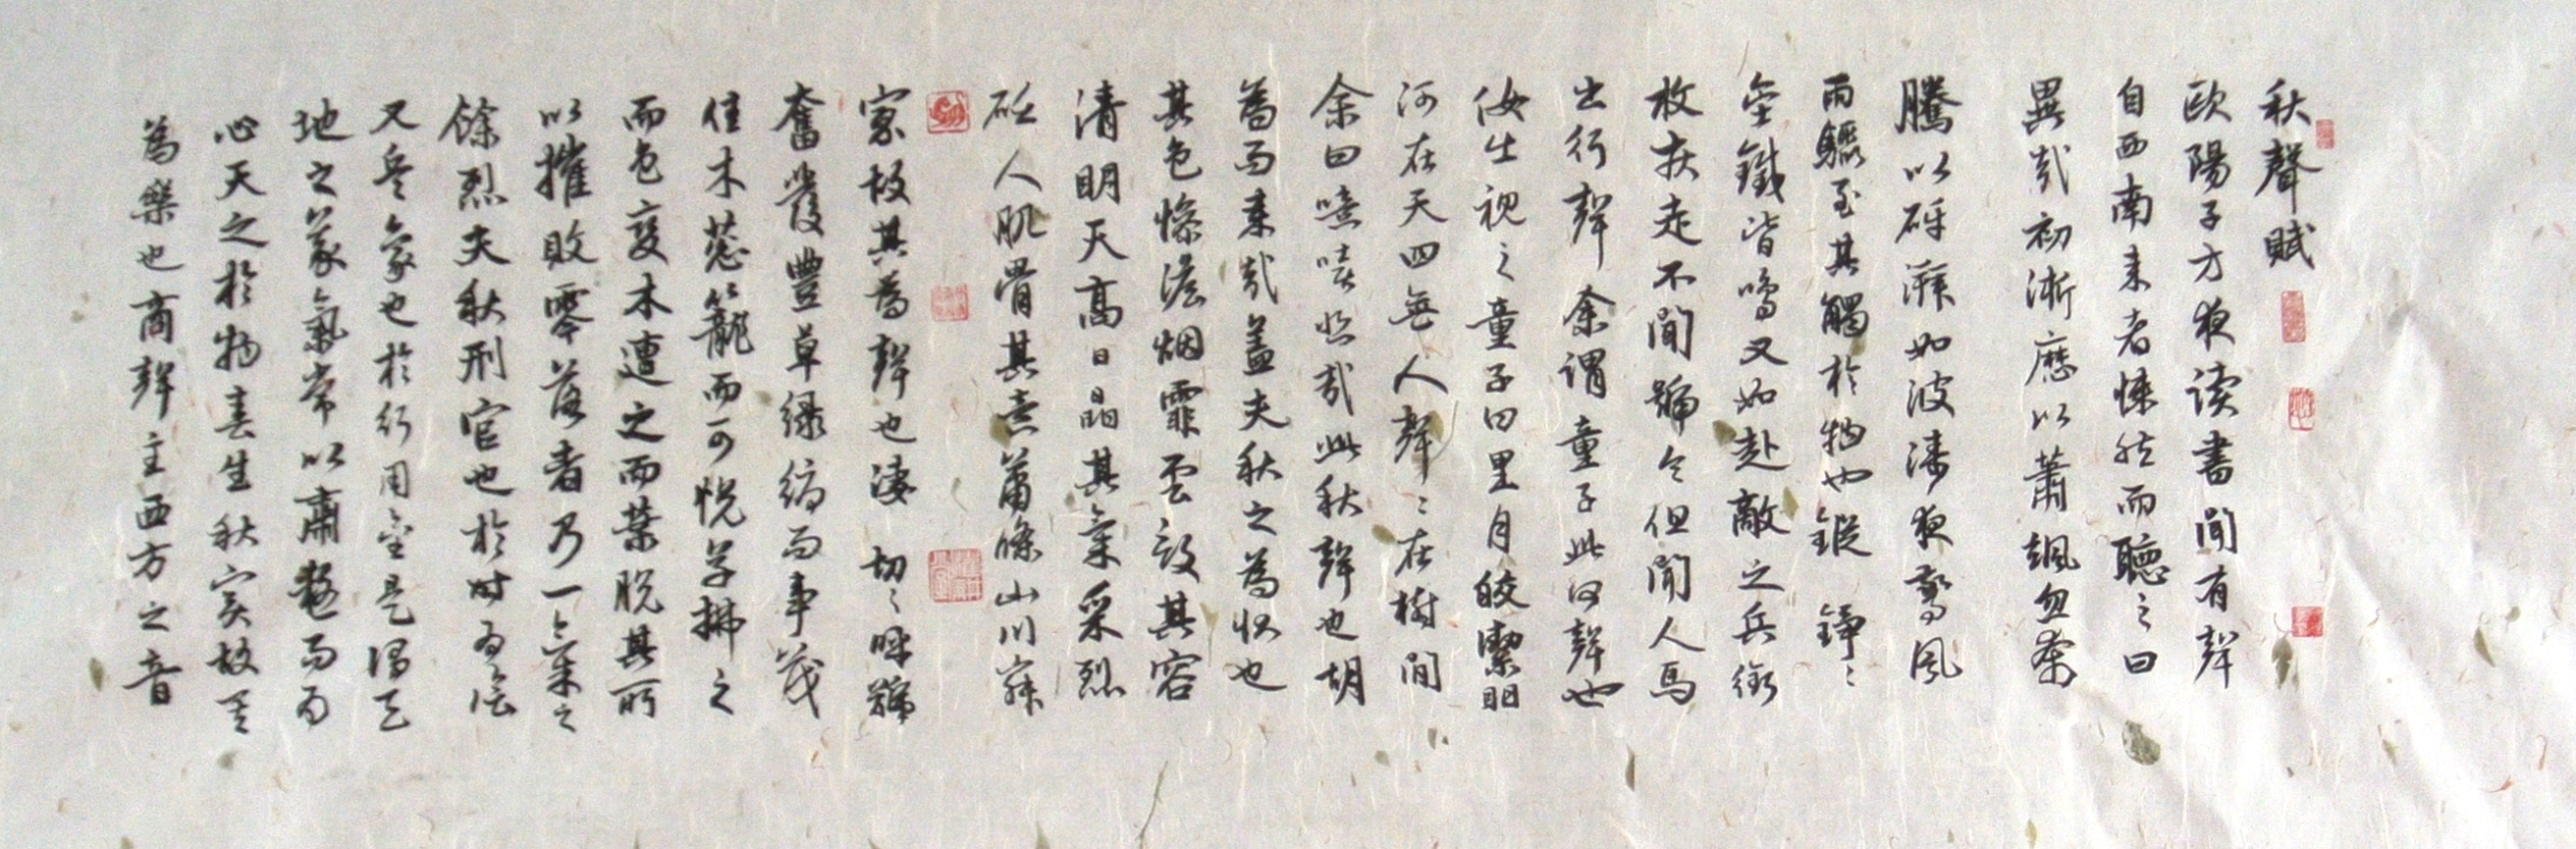 秋聲賦
歐陽子方夜读書聞有聲
自西南来者悚然而聽之曰
異哉初淅歷以蕭颯忽奔
騰以砰湃如波涛夜驚風
雨驟至其觸於物也鏦錚々
金鐵皆鳴又如赴敵之兵銜
枚疾走不聞號令但聞人馬
之行聲余謂童子此何聲也
汝出視之童子曰星月皎潔明
河在天四無人聲々在樹間
余曰噫嘻悲哉此秋聲也胡
為而来哉蓋夫秋之為状也
其色惨澹烟霏雲斂其容
清明天高日晶其氣栗烈
砭人肌骨其意蕭條山川寂
寥故其為聲也凄切々呼號
奮發豐草绿縟而争茂
佳木葱籠而可悦草拂之
而色變木遭之而葉脱其所
以摧敗零落者乃一氣之
餘烈夫秋刑官也於时為陰
又兵象也於行用金是謂天
地之義氣常以肅殺而為
心天之於物春生秋實故其
為樂也商聲主西方之音